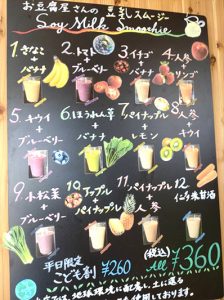 お豆腐屋さんの豆乳スムージー
Soy Milk Smoothie
1. きなこ + バナナ
2. トマト + ブルーベリー
3. イチゴ + バナナ
4. 人参 + リンゴ
5. キウイ + ブルーベリー
6. ほうれん草 + バナナ
7. パイナップル + レモン
8. 人参 + キウイ
9. 小松菜 + ブルーベリー
10. アップル + パイナップル
11. パイナップル + 人参
12. 仁多米甘酒
平日限定
こども割 ¥260
(税込)
All ¥360
地球環境に配慮し、土に還る
使用しております。